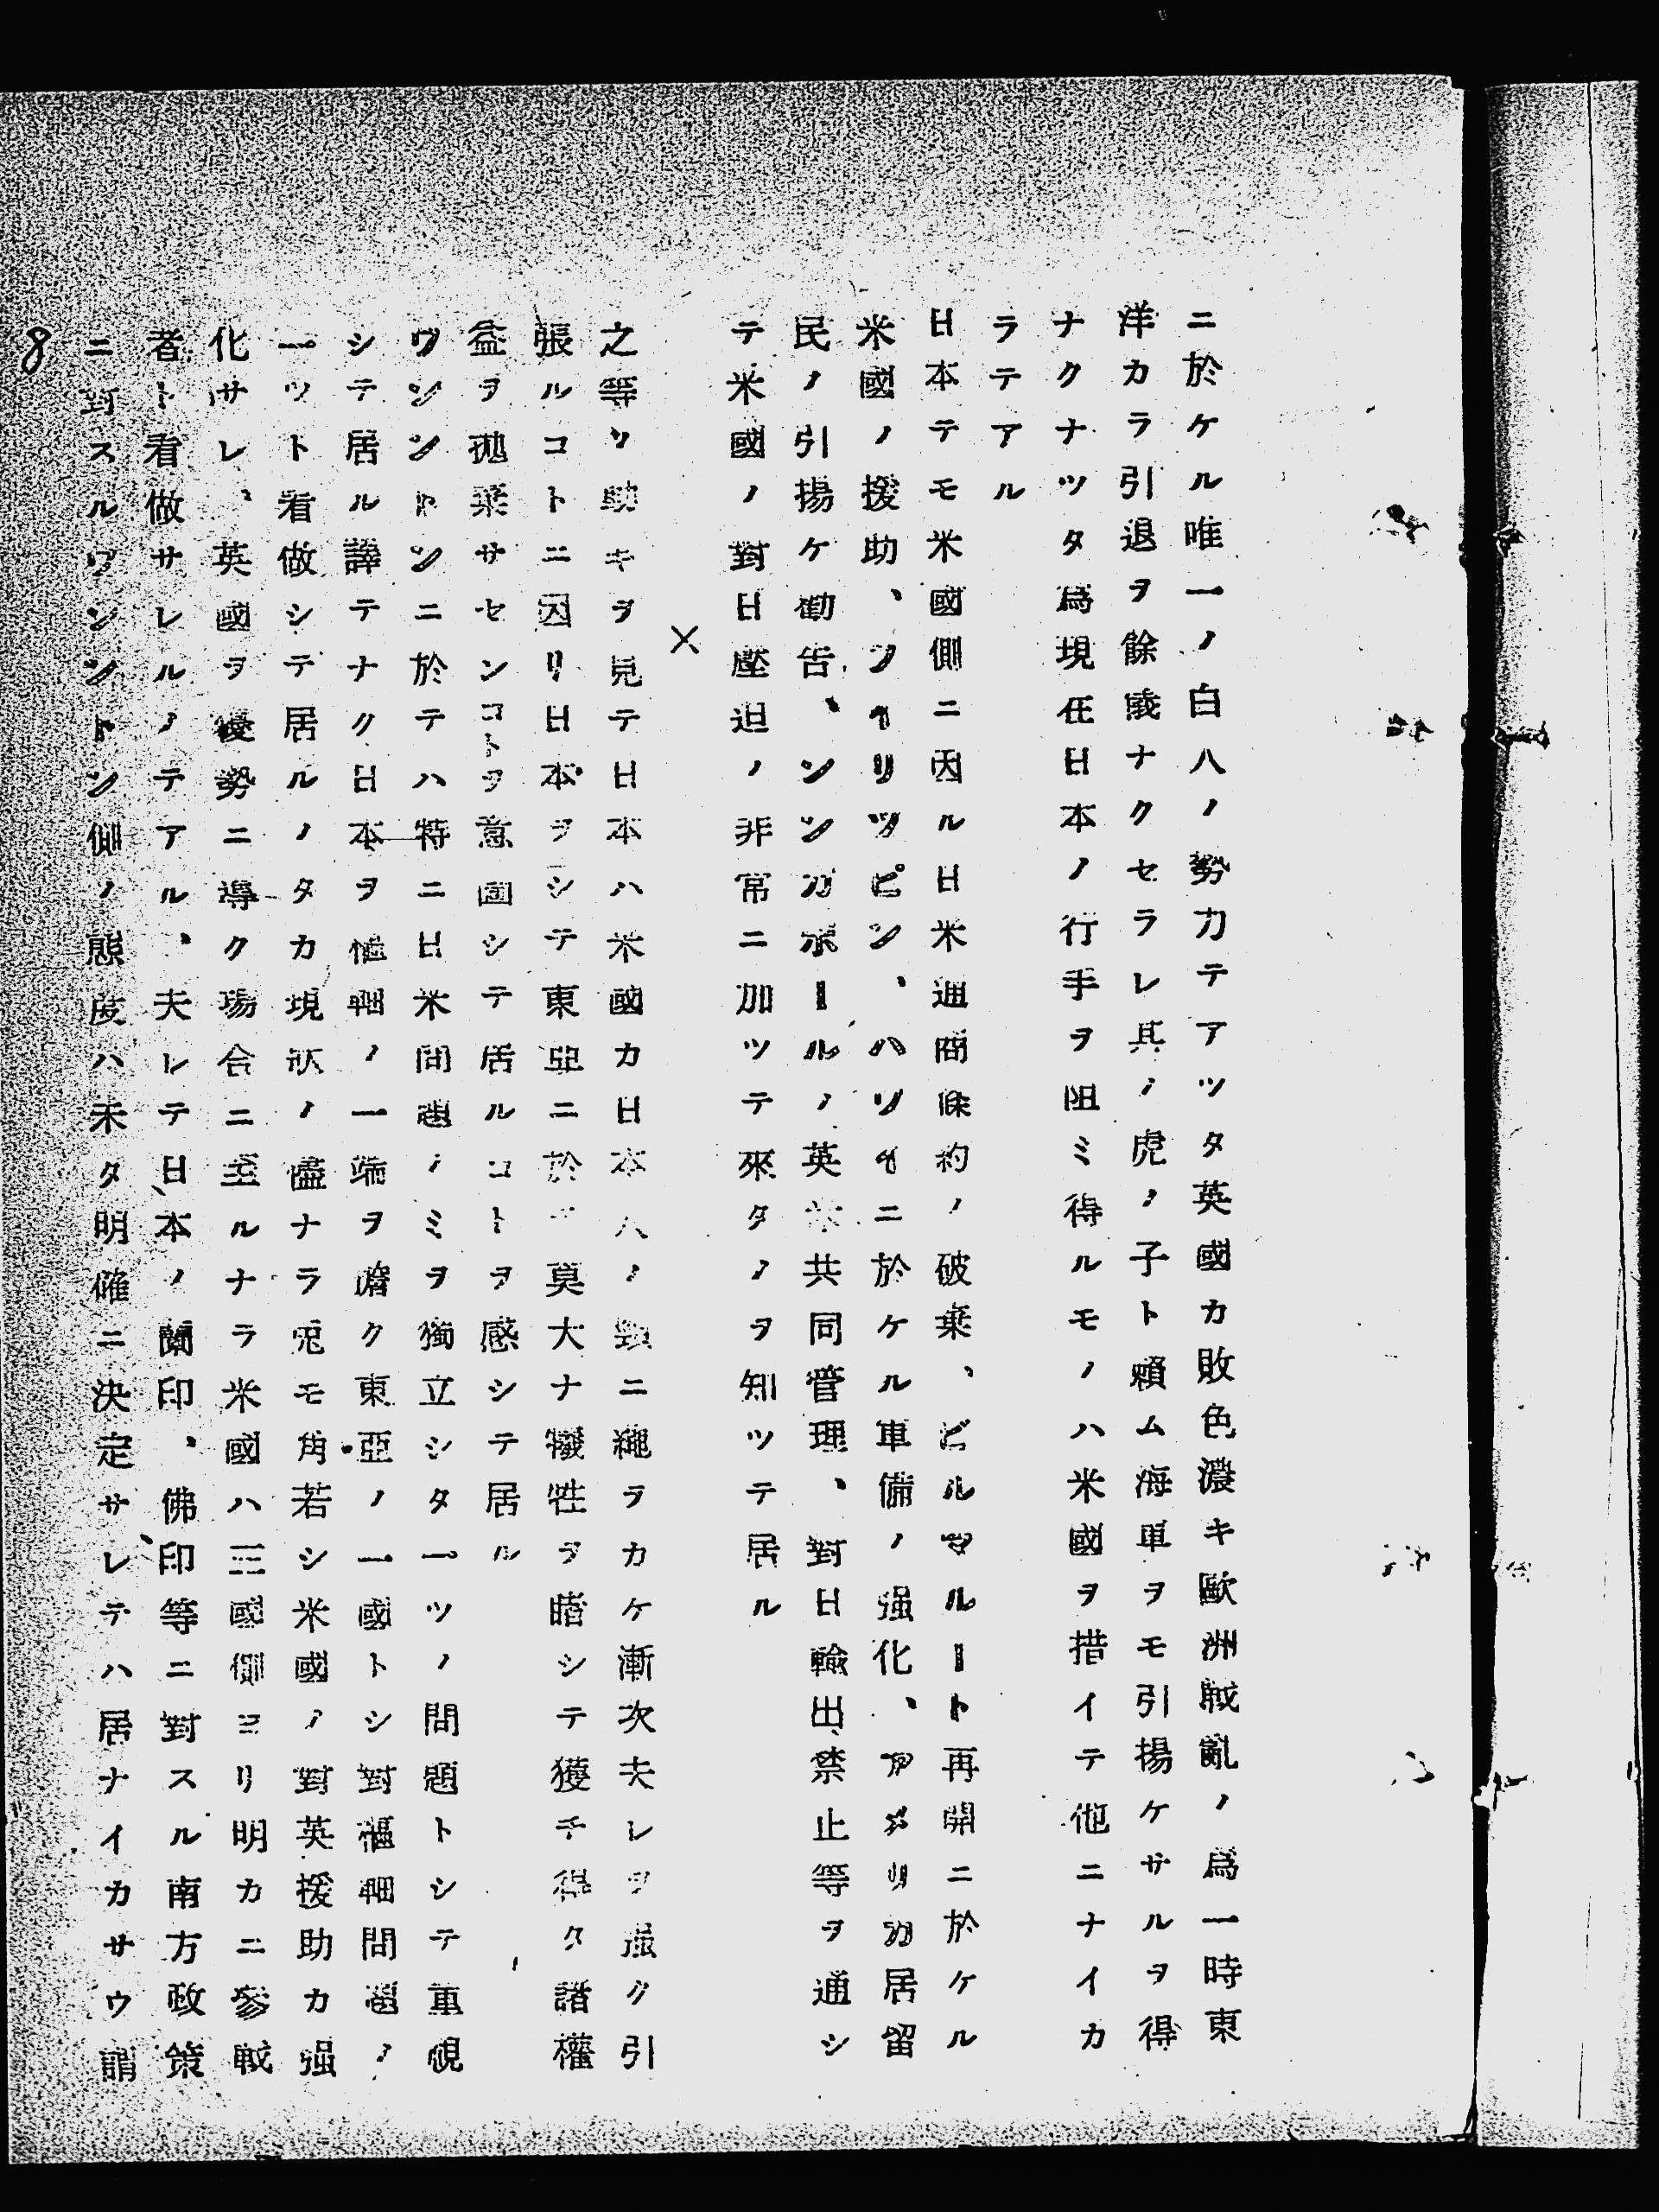 ニ於ケル唯一ノ白人ノ勢力テアツタ英國カ敗色濃キ歐洲戰亂ノ爲一時東
洋カラ引退ヲ餘儀ナクセラレ其ノ虎ノ子ト賴ム海軍ヲモ引揚ケサルヲ得
ナクナツタ爲現在日本ノ行手ヲ阻ミ得ルモノハ米國ヲ措イテ他ニナイカ
ラテアル
日本テモ米國側ニ因ル日米通商條約ノ破棄、ビルマルート再開ニ於ケル
米國ノ援助、フイリツピン、ハワイニ於ケル軍備ノ强化、アメリカ居留
民ノ引揚ケ勸告、シンガポールノ英米共同管理、對日輸出禁止等ヲ通シ
テ米國ノ對日壓迫ノ非常ニ加ツテ來タノヲ知ツテ居ル
×
之等ノ動キヲ見テ日本ハ米國カ日本人ノ頸ニ繩ヲカケ漸次夫レヲ强ク引
張ルコトニ因リ日本ヲシテ東亞ニ於テ莫大ナ犧牲ヲ賭シテ獲チ得タ諸權
益ヲ抛棄サセンコトヲ意圖シテ居ルコトヲ感シテ居ル
ワシントンニ於テハ特ニ日米問題ノミヲ獨立シタ一ツノ問題トシテ重視
シテ居ル譯テナク日本ヲ樞軸ノ一端ヲ擔ク東亞ノ一國トシ對樞軸問題ノ
一ツト看做シテ居ルノタカ現狀ノ儘ナラ兎モ角若シ米國ノ對英援助カ强
化サレ、英國ヲ優勢ニ導ク場合ニ至ルナラ米國ハ三國側ヨリ明カニ參戰
者ト看做サレルノテアル、夫レテ日本ノ蘭印、佛印等ニ對スル南方政策
ニ對スルワシントン側ノ態度ハ未タ明確ニ決定サレテハ居ナイカサウ謂
8